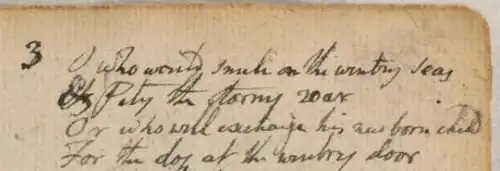 3 O who would smile on the wintry seas
& Pity the stormy roar
Or who will exchange his new born child
For the dog at the wintry door